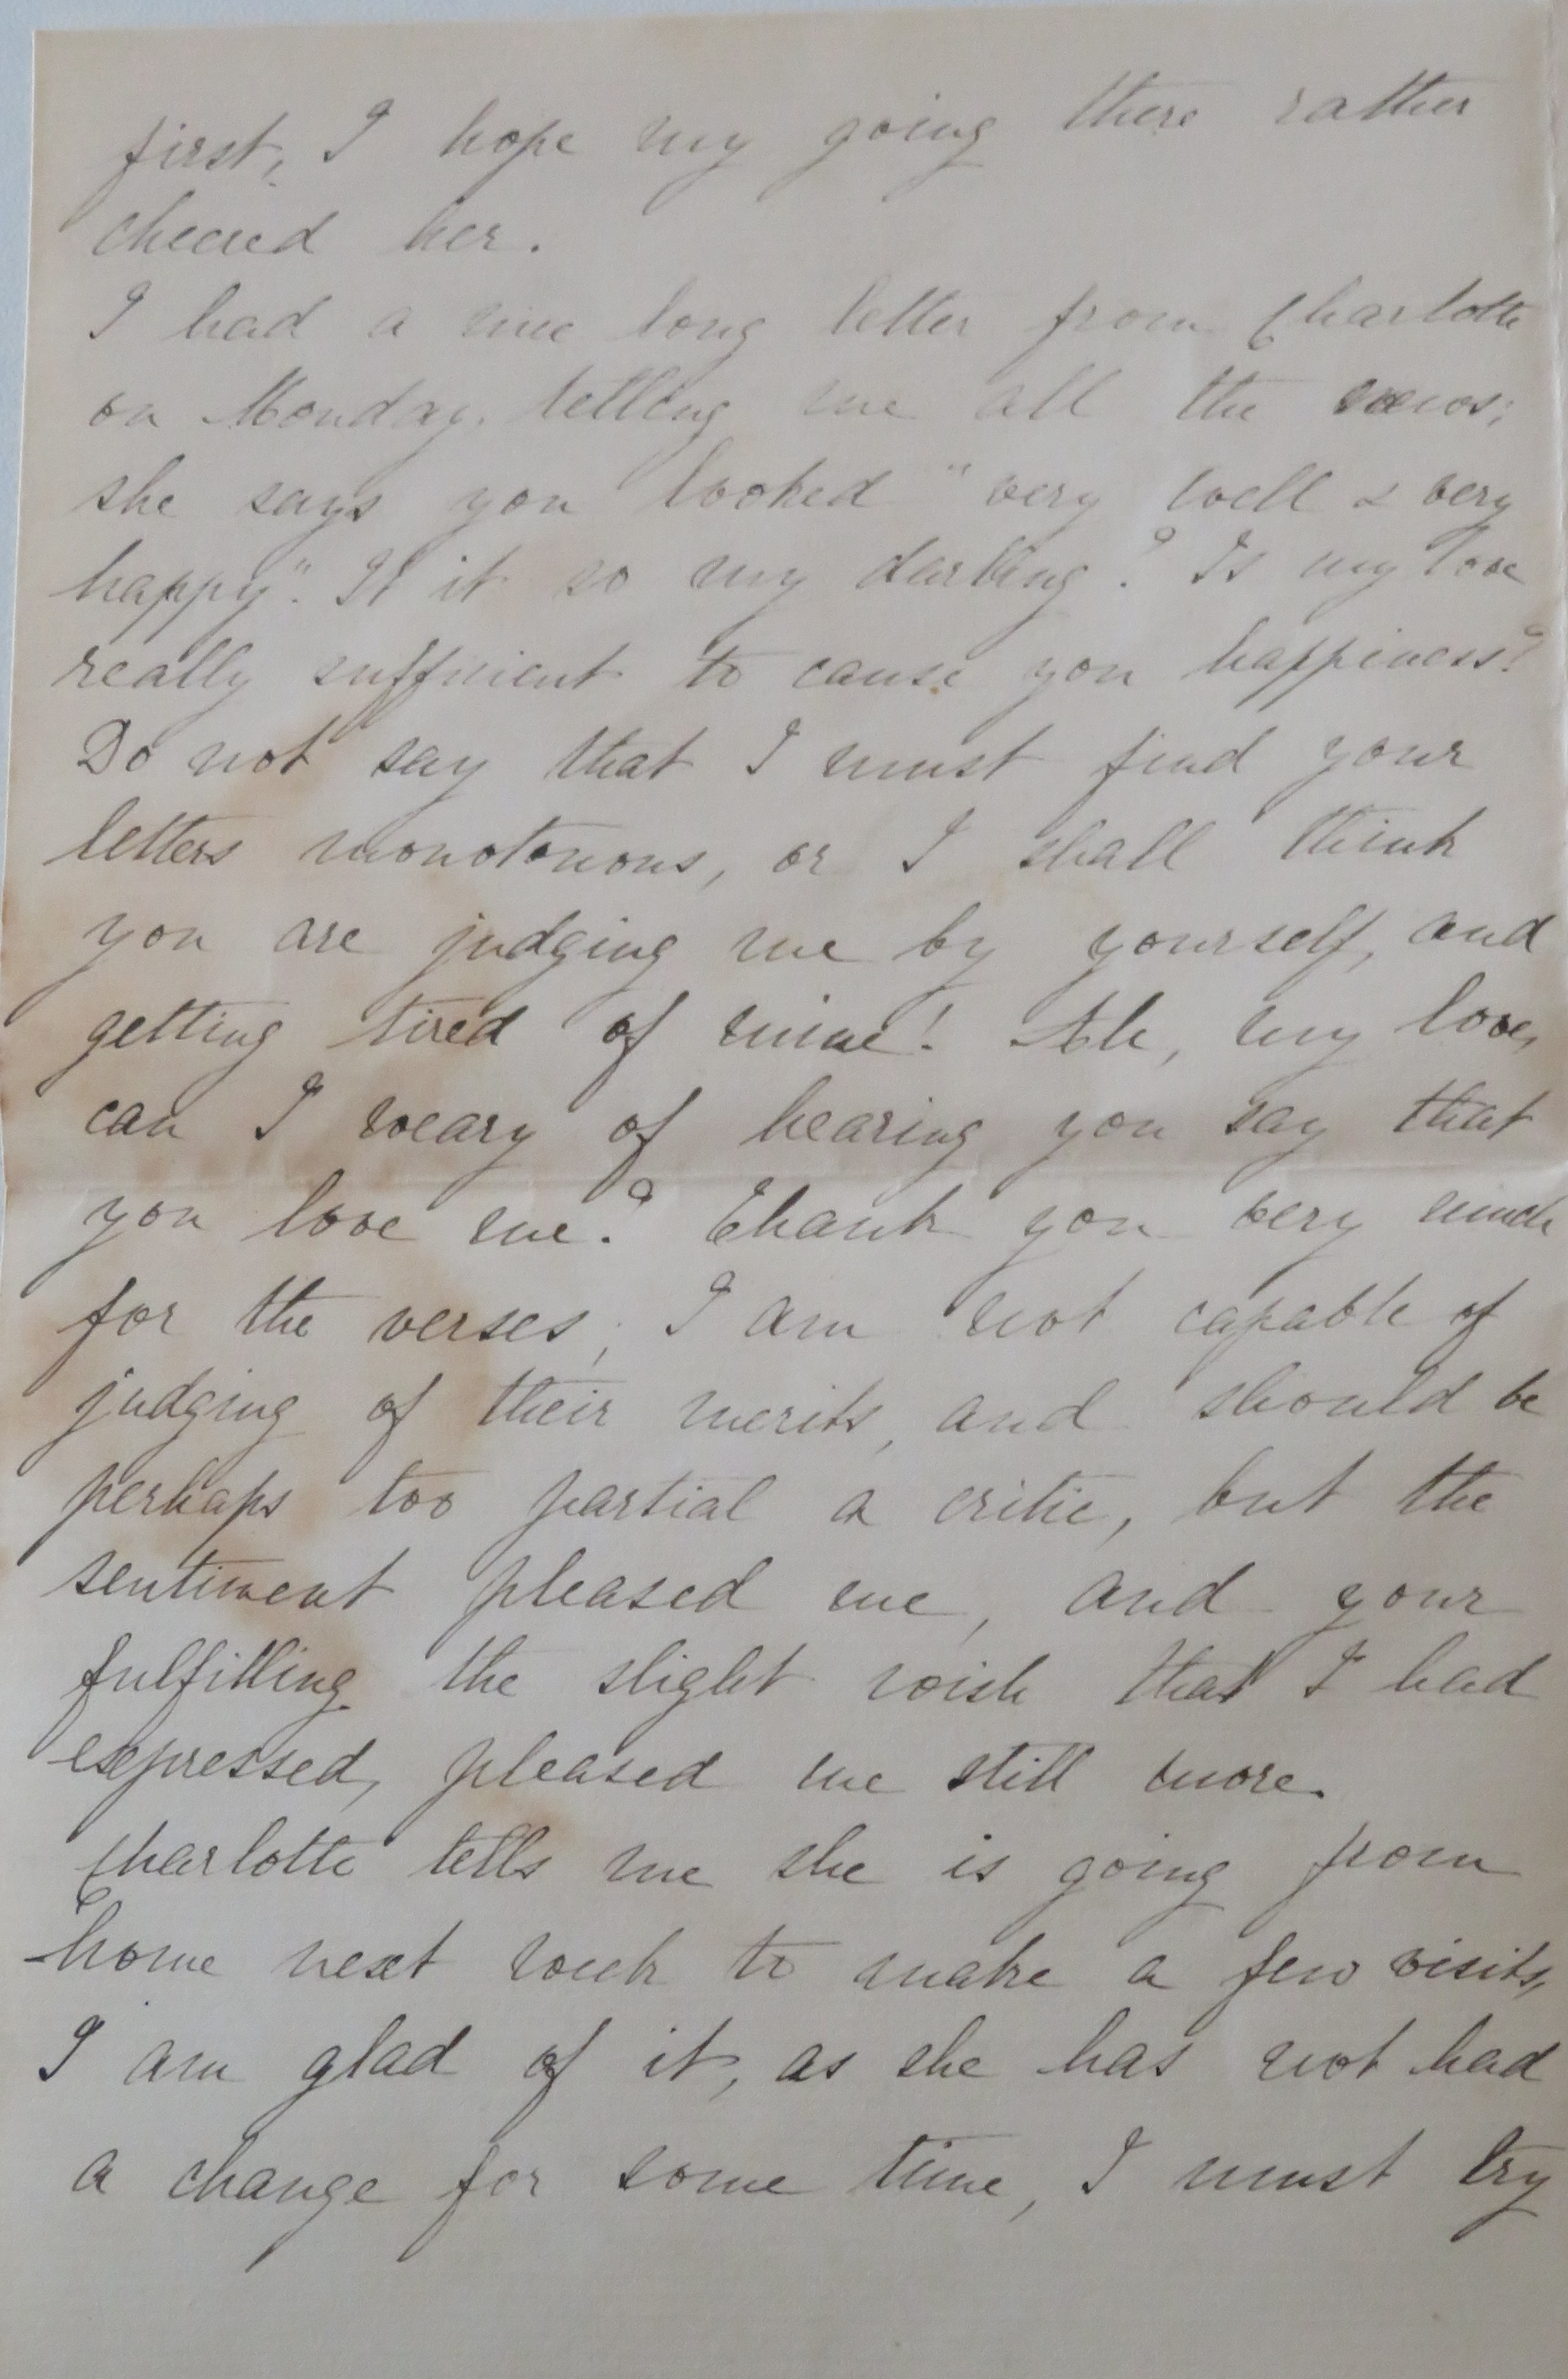 first, I hope my going there rather
cheered her.
I had a nice long letter from Charlotte
on Monday, telling me all the news;
she says you looked "very well & very
happy". Is it so my darling? Is my love
really sufficient to cause you happiness?
Do not say that I must find your
letters monotonous, or I shall think
you are judging me by yourself, and
getting tired of mine! Ah, my love,
can I weary of hearing you say that
you love me? Thank you very much
for the verses, I am not capable of
judging of their merits, and should be
perhaps too partial a critic, but the
sentiment pleased me, and your
fulfilling the slight wish that I had
expressed, pleased me still more.
Charlotte tells me she is going from
home next week to make a few visits,
I am glad of it, as she has not had
a change for some time, I must try